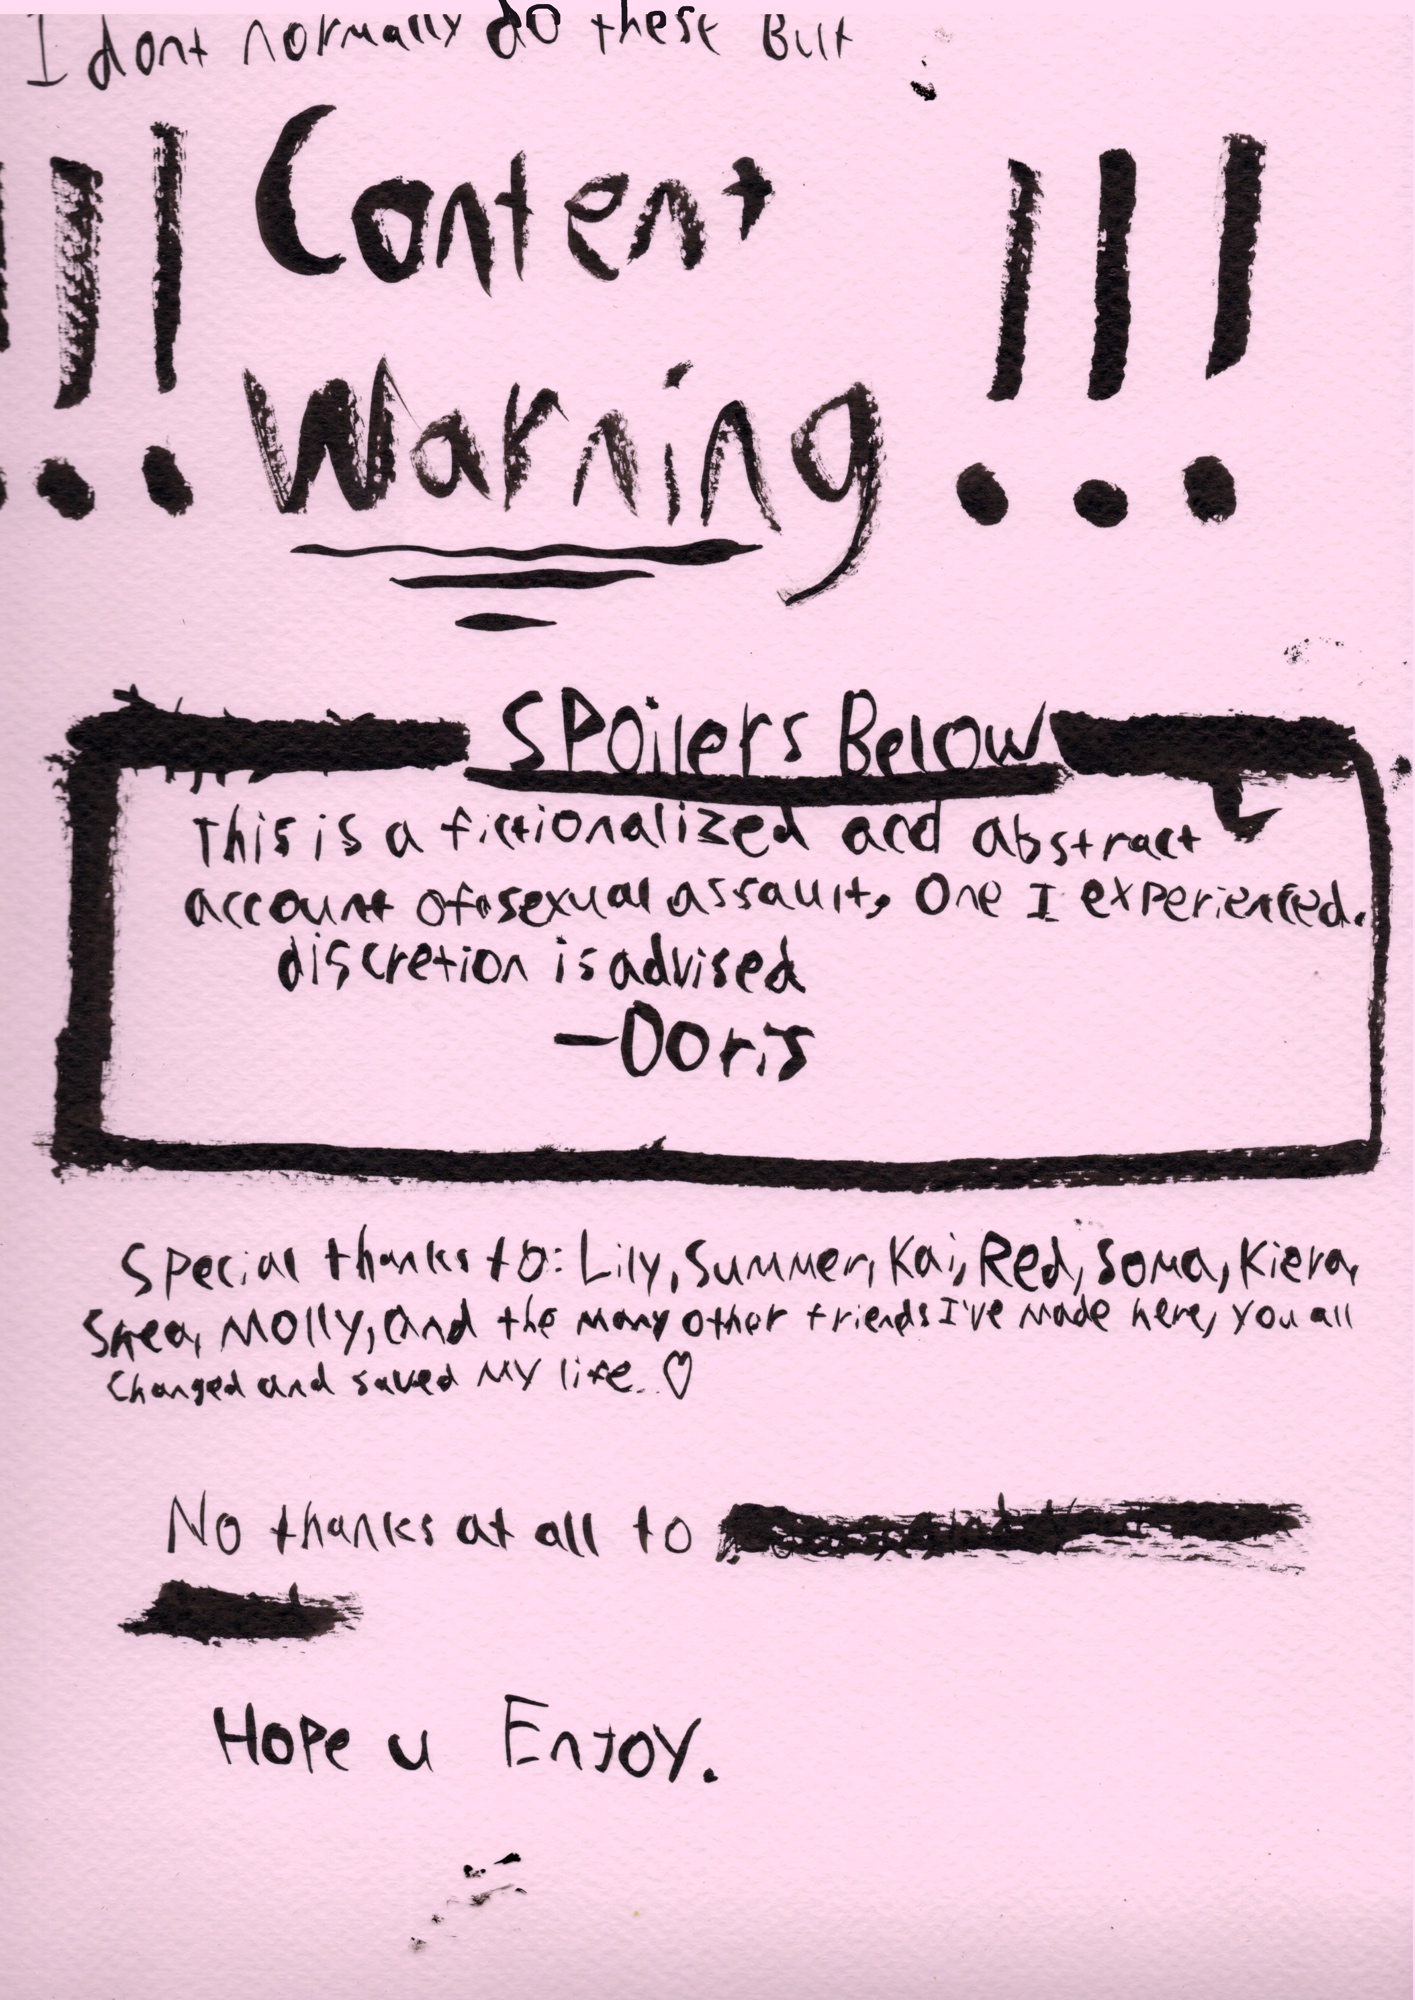 I dont normally do these But
!!! Content !!!
Warning
SPoilers Below
This is a fictionalized and abstract
account of a sexual assault, One I experienced.
discretion is advised
-Doris
Special thanks to: Lily, Summer, Kai, Red, Soma, Kiera,
Molly, and the many other friends I've made here, you all
Changed and saved MY life. ♡
No thanks at all to
Hope u Enjoy.